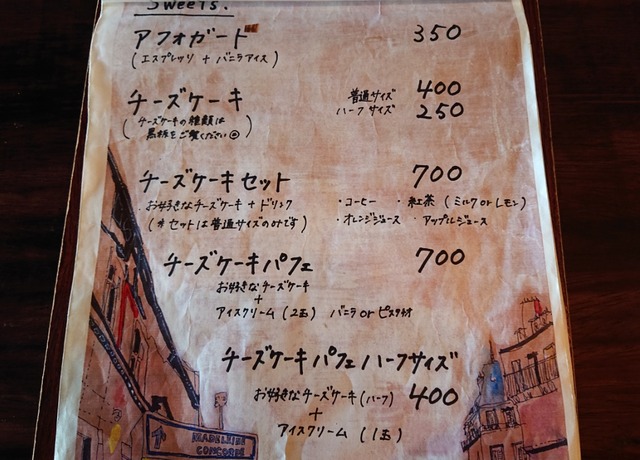 Sweets.
アフォガード 350
(エスプレッソ + バニラアイス)
チーズケーキ 普通サイズ 400
ハーフサイズ 250
(チーズケーキの種類は
黒板をご覧ください☺)
チーズケーキセット 700
お好きなチーズケーキ + ドリンク ・コーヒー ・紅茶 (ミルク or レモン)
(※セットは普通サイズのみです) ・オレンジジュース ・アップルジュース
チーズケーキパフェ 700
お好きなチーズケーキ
+
アイスクリーム (2玉) バニラ or ピスタチオ
チーズケーキパフェハーフサイズ
お好きなチーズケーキ(ハーフ) 400
+
アイスクリーム (1玉)
MADELEINE
CONCORDE